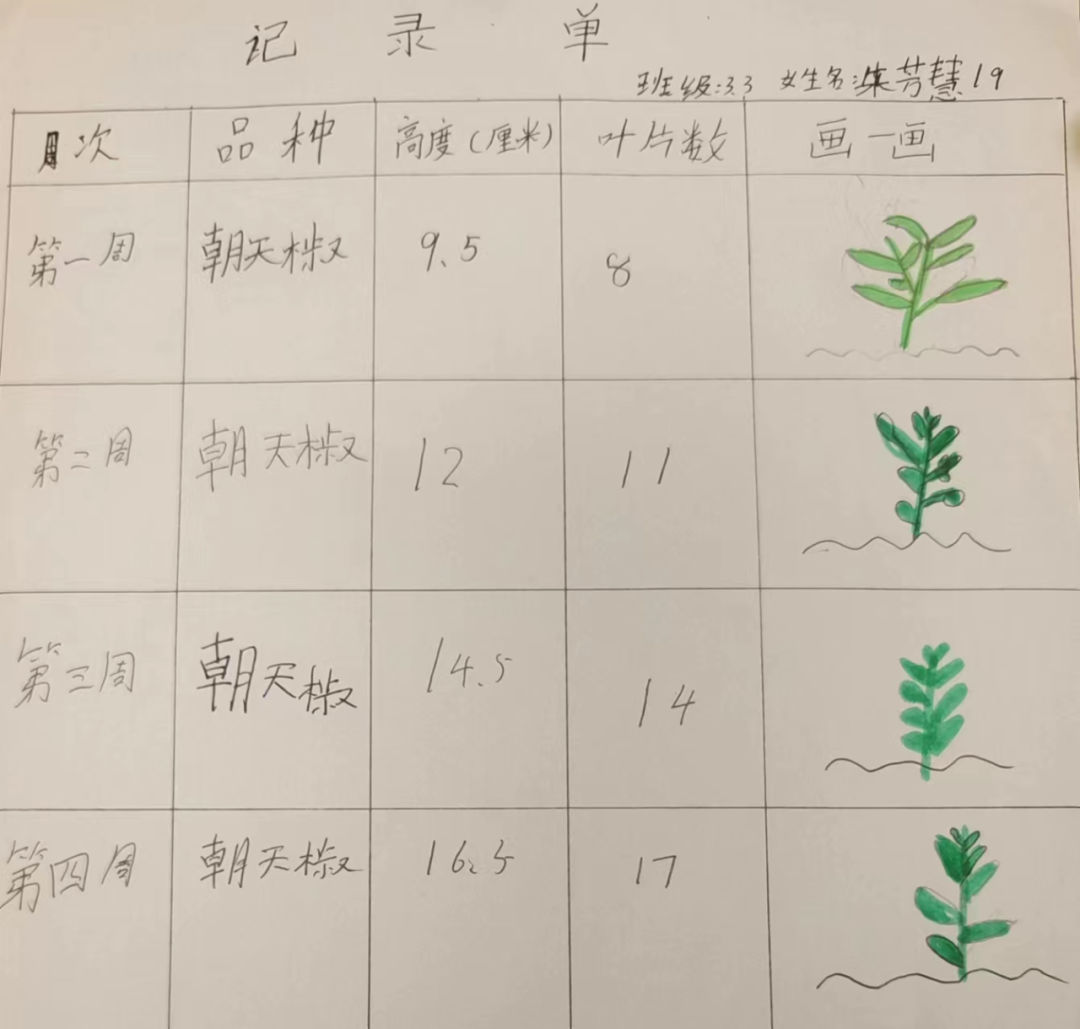 记录单
班级:3.3 姓名:朱芳慧19
周次 品种 高度(厘米) 叶片数 画一画
第一周 朝天椒 9.5 8
第二周 朝天椒 12 11
第三周 朝天椒 14.5 14
第四周 朝天椒 16.5 17